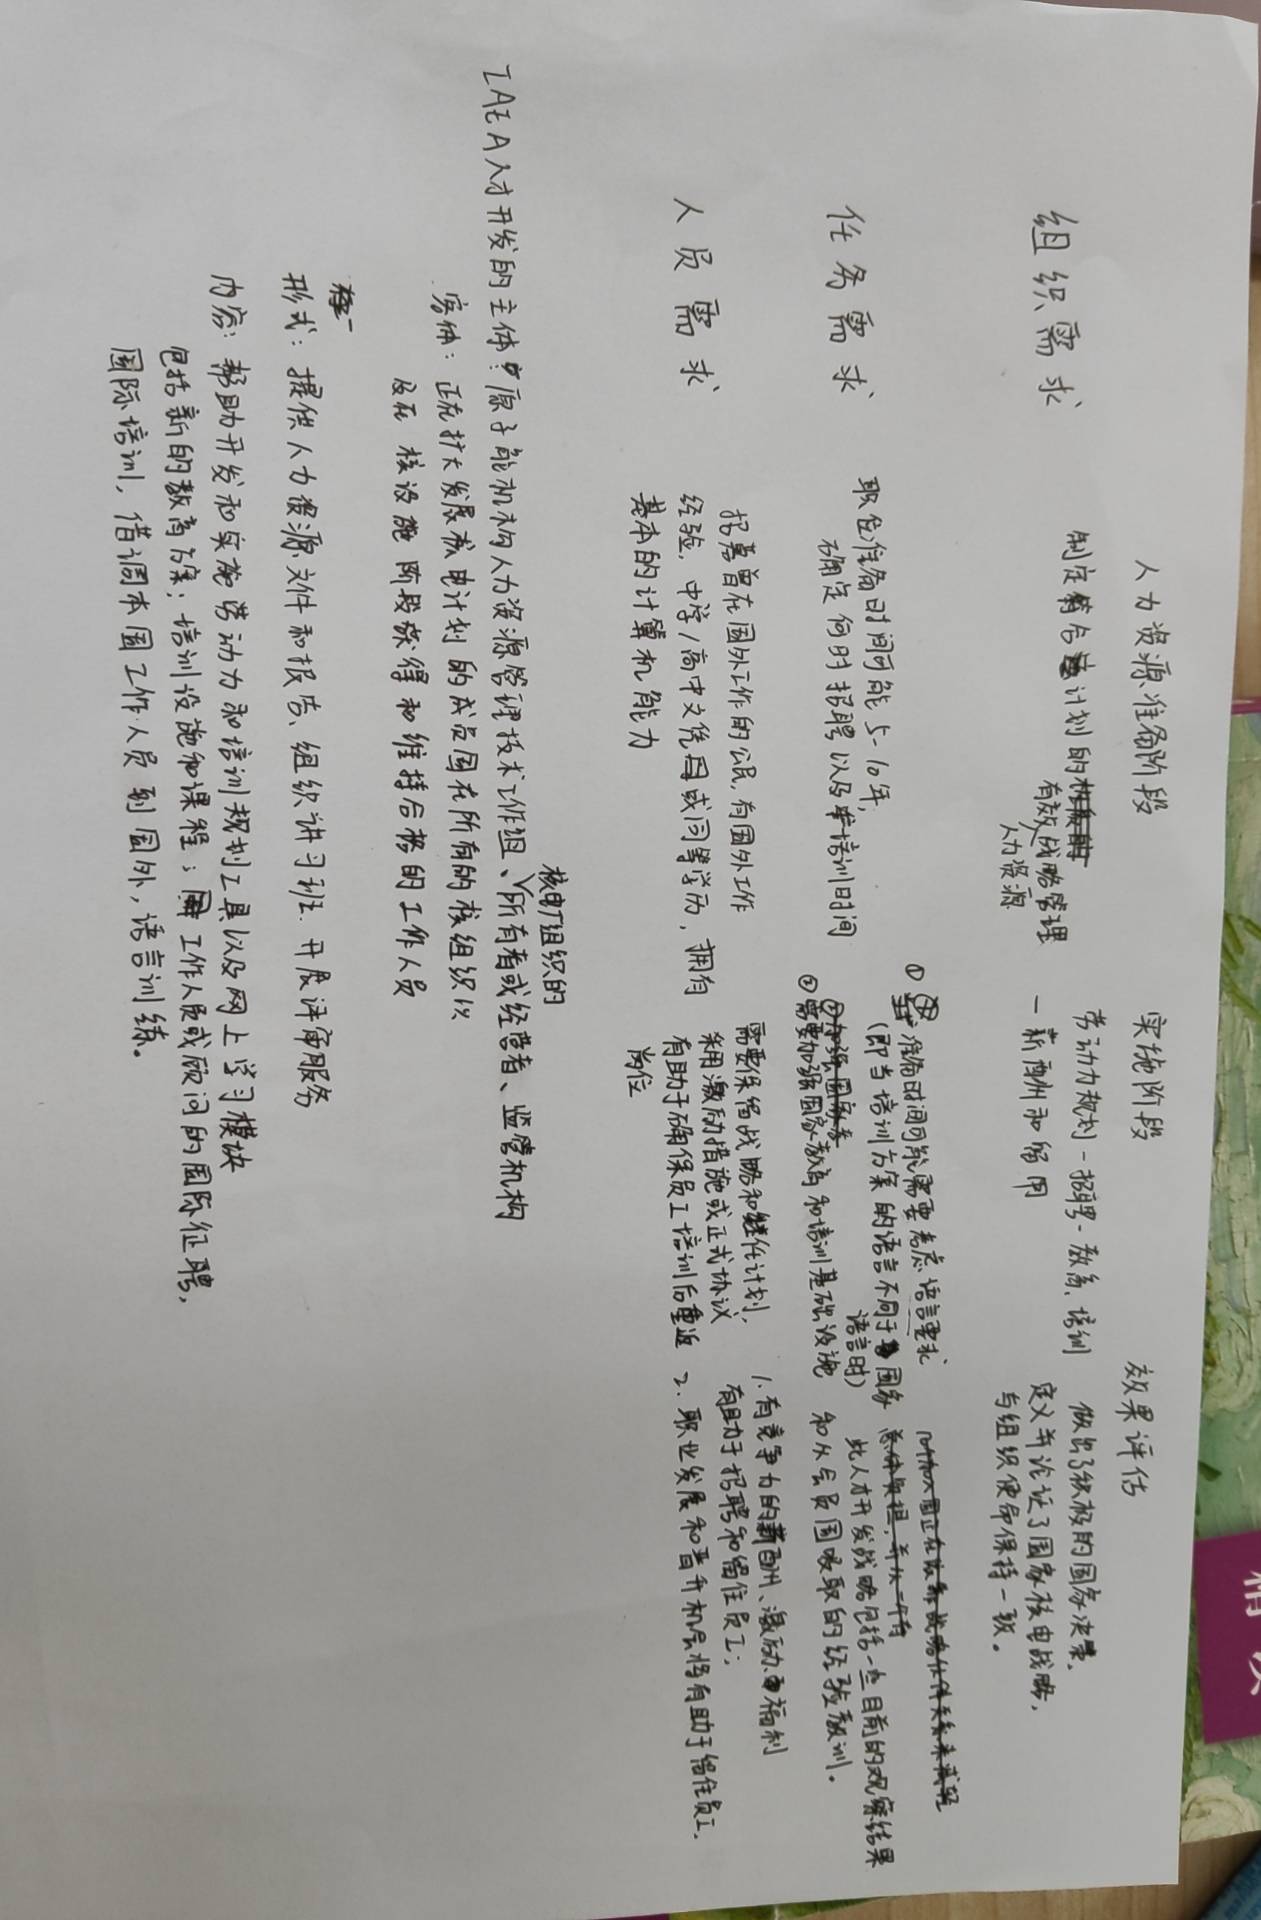 人力资源准备阶段 实施阶段 效果评估
组织需求
制定符合计划的
有效战略管理
人力资源
劳动力规划-招聘-教育、培训
-薪酬和留用
做出了积极的国家决策,
定义并论证了国家核电战略,
与组织使命保持一致。
任务需求
职位准备时间可能5-10年,
确定何时招聘以及培训时间
① 准备时间可能需要考虑语言要求
(即当培训方案的语言不同于国家
语言时)
② 需要加强国家教育和培训基础设施
此人才开发战略包括一些目前的观察结果
和从会员国吸取的经验教训。
人员需求
招募曾在国外工作的公民,有国外工作
经验,中学/高中文凭或同等学历,拥有
基本的计算机能力
需要保留战略和继任计划,
采用激励措施或正式协议
有助于确保员工培训后重返
岗位
1.有竞争力的薪酬、激励、福利
有助于招聘和留住员工;
2.职业发展和晋升机会将有助于留住员工.
核电厂组织的
IAEA人才开发的主体:原子能机构人力资源管理技术工作组、所有者或经营者、监管机构
客体:正在扩大发展核电计划的成员国在所有的核组织以
及在核设施阶段获得和维持合格的工作人员
形式:提供人力资源文件和报告、组织讲习班、开展评审服务
内容:帮助开发和实施劳动力和培训规划工具以及网上学习模块
包括新的教育方案;培训设施和课程;工作人员或顾问的国际征聘,
国际培训,借调本国工作人员到国外,语言训练。
精